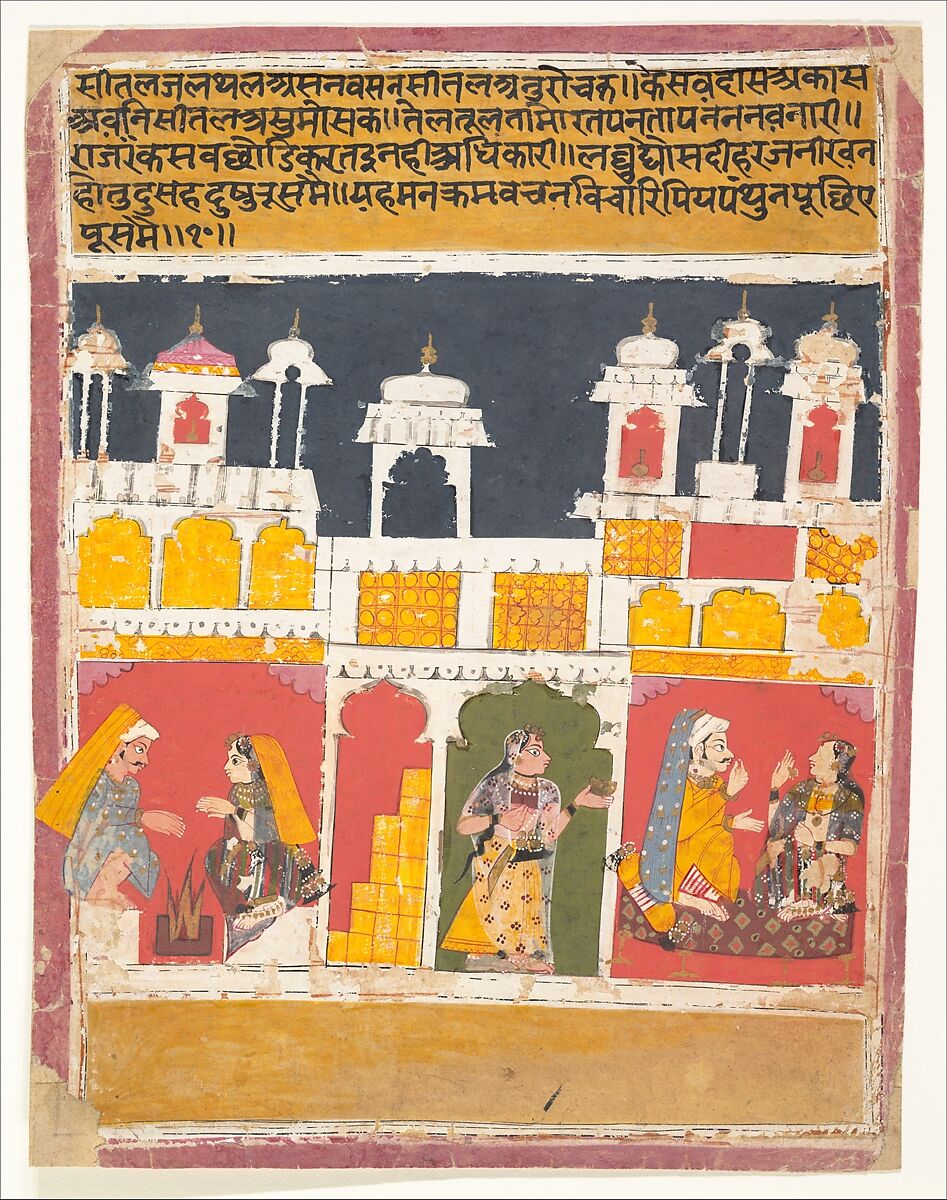 सीतलजलथलअसनवसनसीतलअनुरोचक॥केसवदासअकास
अवनिसीतलअसुमोसक॥तेलतूलतामोरतपनतापननवनारी॥
राजरंकसवछोडिकरतइनहीअधिकारी॥लघुद्योसदीहरजनीरवन
होतुदुसहदुषुरूसमै॥यहमनक्रमवचनविचारिपियपंथुनपूछिए
पूसमै॥१०॥